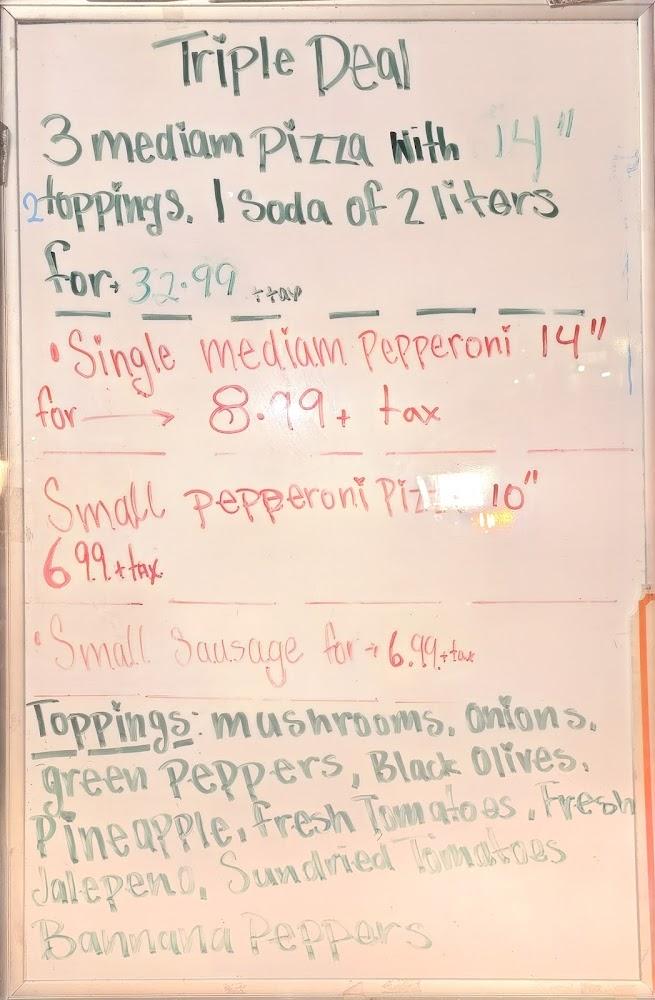 Triple Deal
3 mediam Pizza with 14"
2 toppings. 1 Soda of 2 liters
for → 32.99 + tax
• Single mediam Pepperoni 14"
for → 8.99 + tax
Small pepperoni 10"
6.99 + tax
• Small Sausage for → 6.99 + tax
Toppings: mushrooms, onions,
green Peppers, Black Olives,
Pineapple, fresh Tomatoes, Fresh
Jalepeno, Sundried Tomatoes
Bannana Peppers